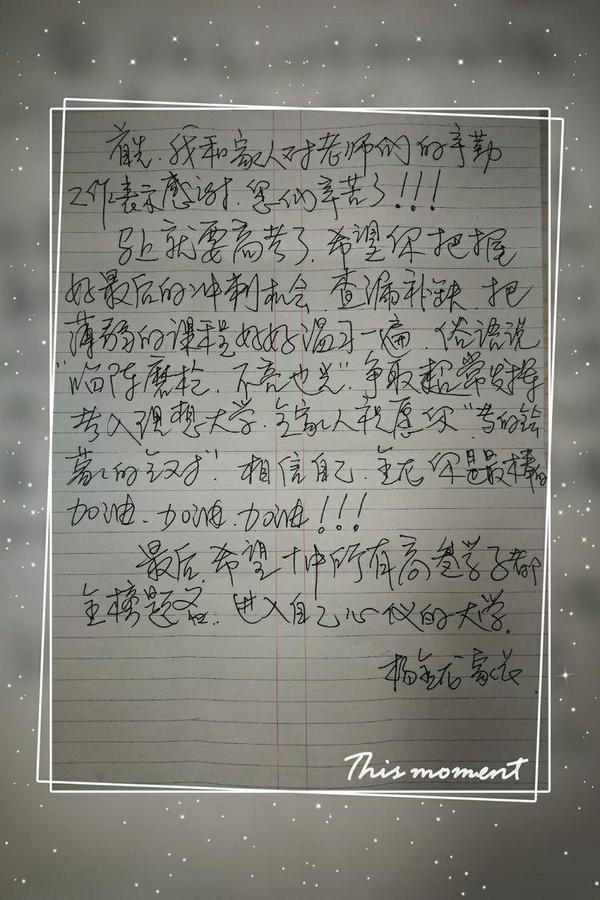 首先,我和家人对老师们的辛勤
工作表示感谢,您们辛苦了!!!
马上就要高考了,希望你把握
好最后的冲刺机会,查漏补缺,把
薄弱的课程好好温习一遍,俗语说
"临阵磨枪,不亮也光",争取超常发挥
考入理想大学,全家人祝愿你"考的全
蒙的全对",相信自己,金龙你是最棒的
加油,加油,加油!!!
最后,希望十中所有高叁学子都
金榜题名,进入自己心仪的大学。
杨金龙家长
This moment